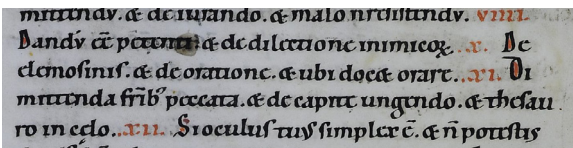 mittendu. & de iurando. & malo n̄ resistendu. VIIII.
Dandū ēē petenti. & de dilectione inimicoꝝ. .X. De
elemosinis. & de oratione. & ubi doc& orare. .XI. Di
mittenda fr̄ib᷒ peccata. & de capite ungendo. & thesau
ro in celo. .XII. Si oculus tuus simplex ē. & n̄ potestis